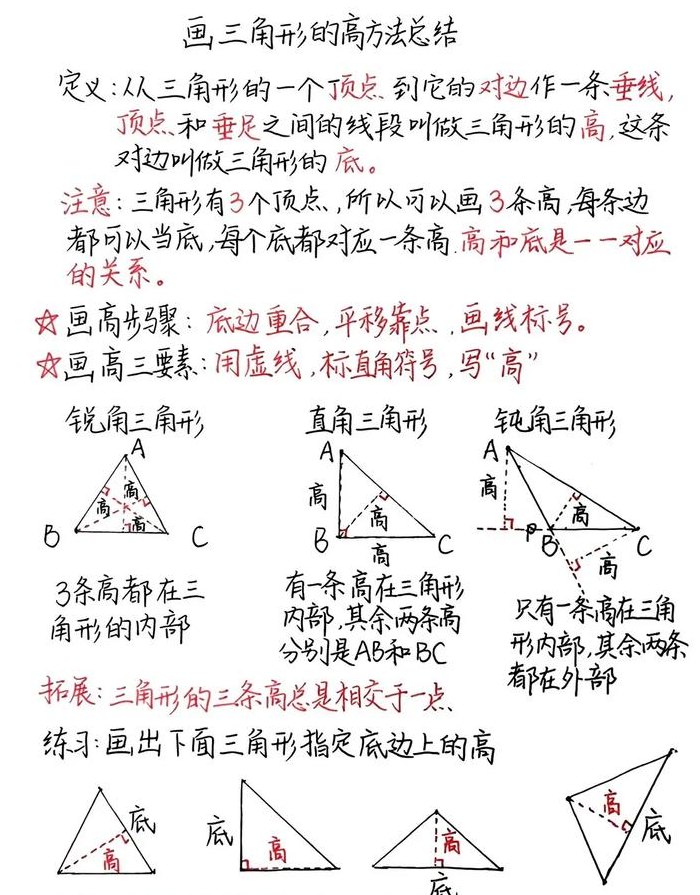 画三角形的高方法总结
定义:从三角形的一个顶点到它的对边作一条垂线,
顶点和垂足之间的线段叫做三角形的高,这条
对边叫做三角形的底。
注意:三角形有3个顶点,所以可以画3条高,每条边
都可以当底,每个底都对应一条高.高和底是一一对应
的关系。
☆画高步骤:底边重合,平移靠点,画线标号。
☆画高三要素:用虚线,标直角符号,写“高”
锐角三角形 直角三角形 钝角三角形
A A A
高 高 高 高
高 高 高
B C B C B C
高 高
3条高都在三
角形的内部
有一条高在三角形
内部,其余两条高
分别是AB和BC
只有一条高在三角
形内部,其余两条
都在外部
拓展:三角形的三条高总是相交于一点
练习:画出下面三角形指定底边上的高
底 高
底 高
高 底
高 底